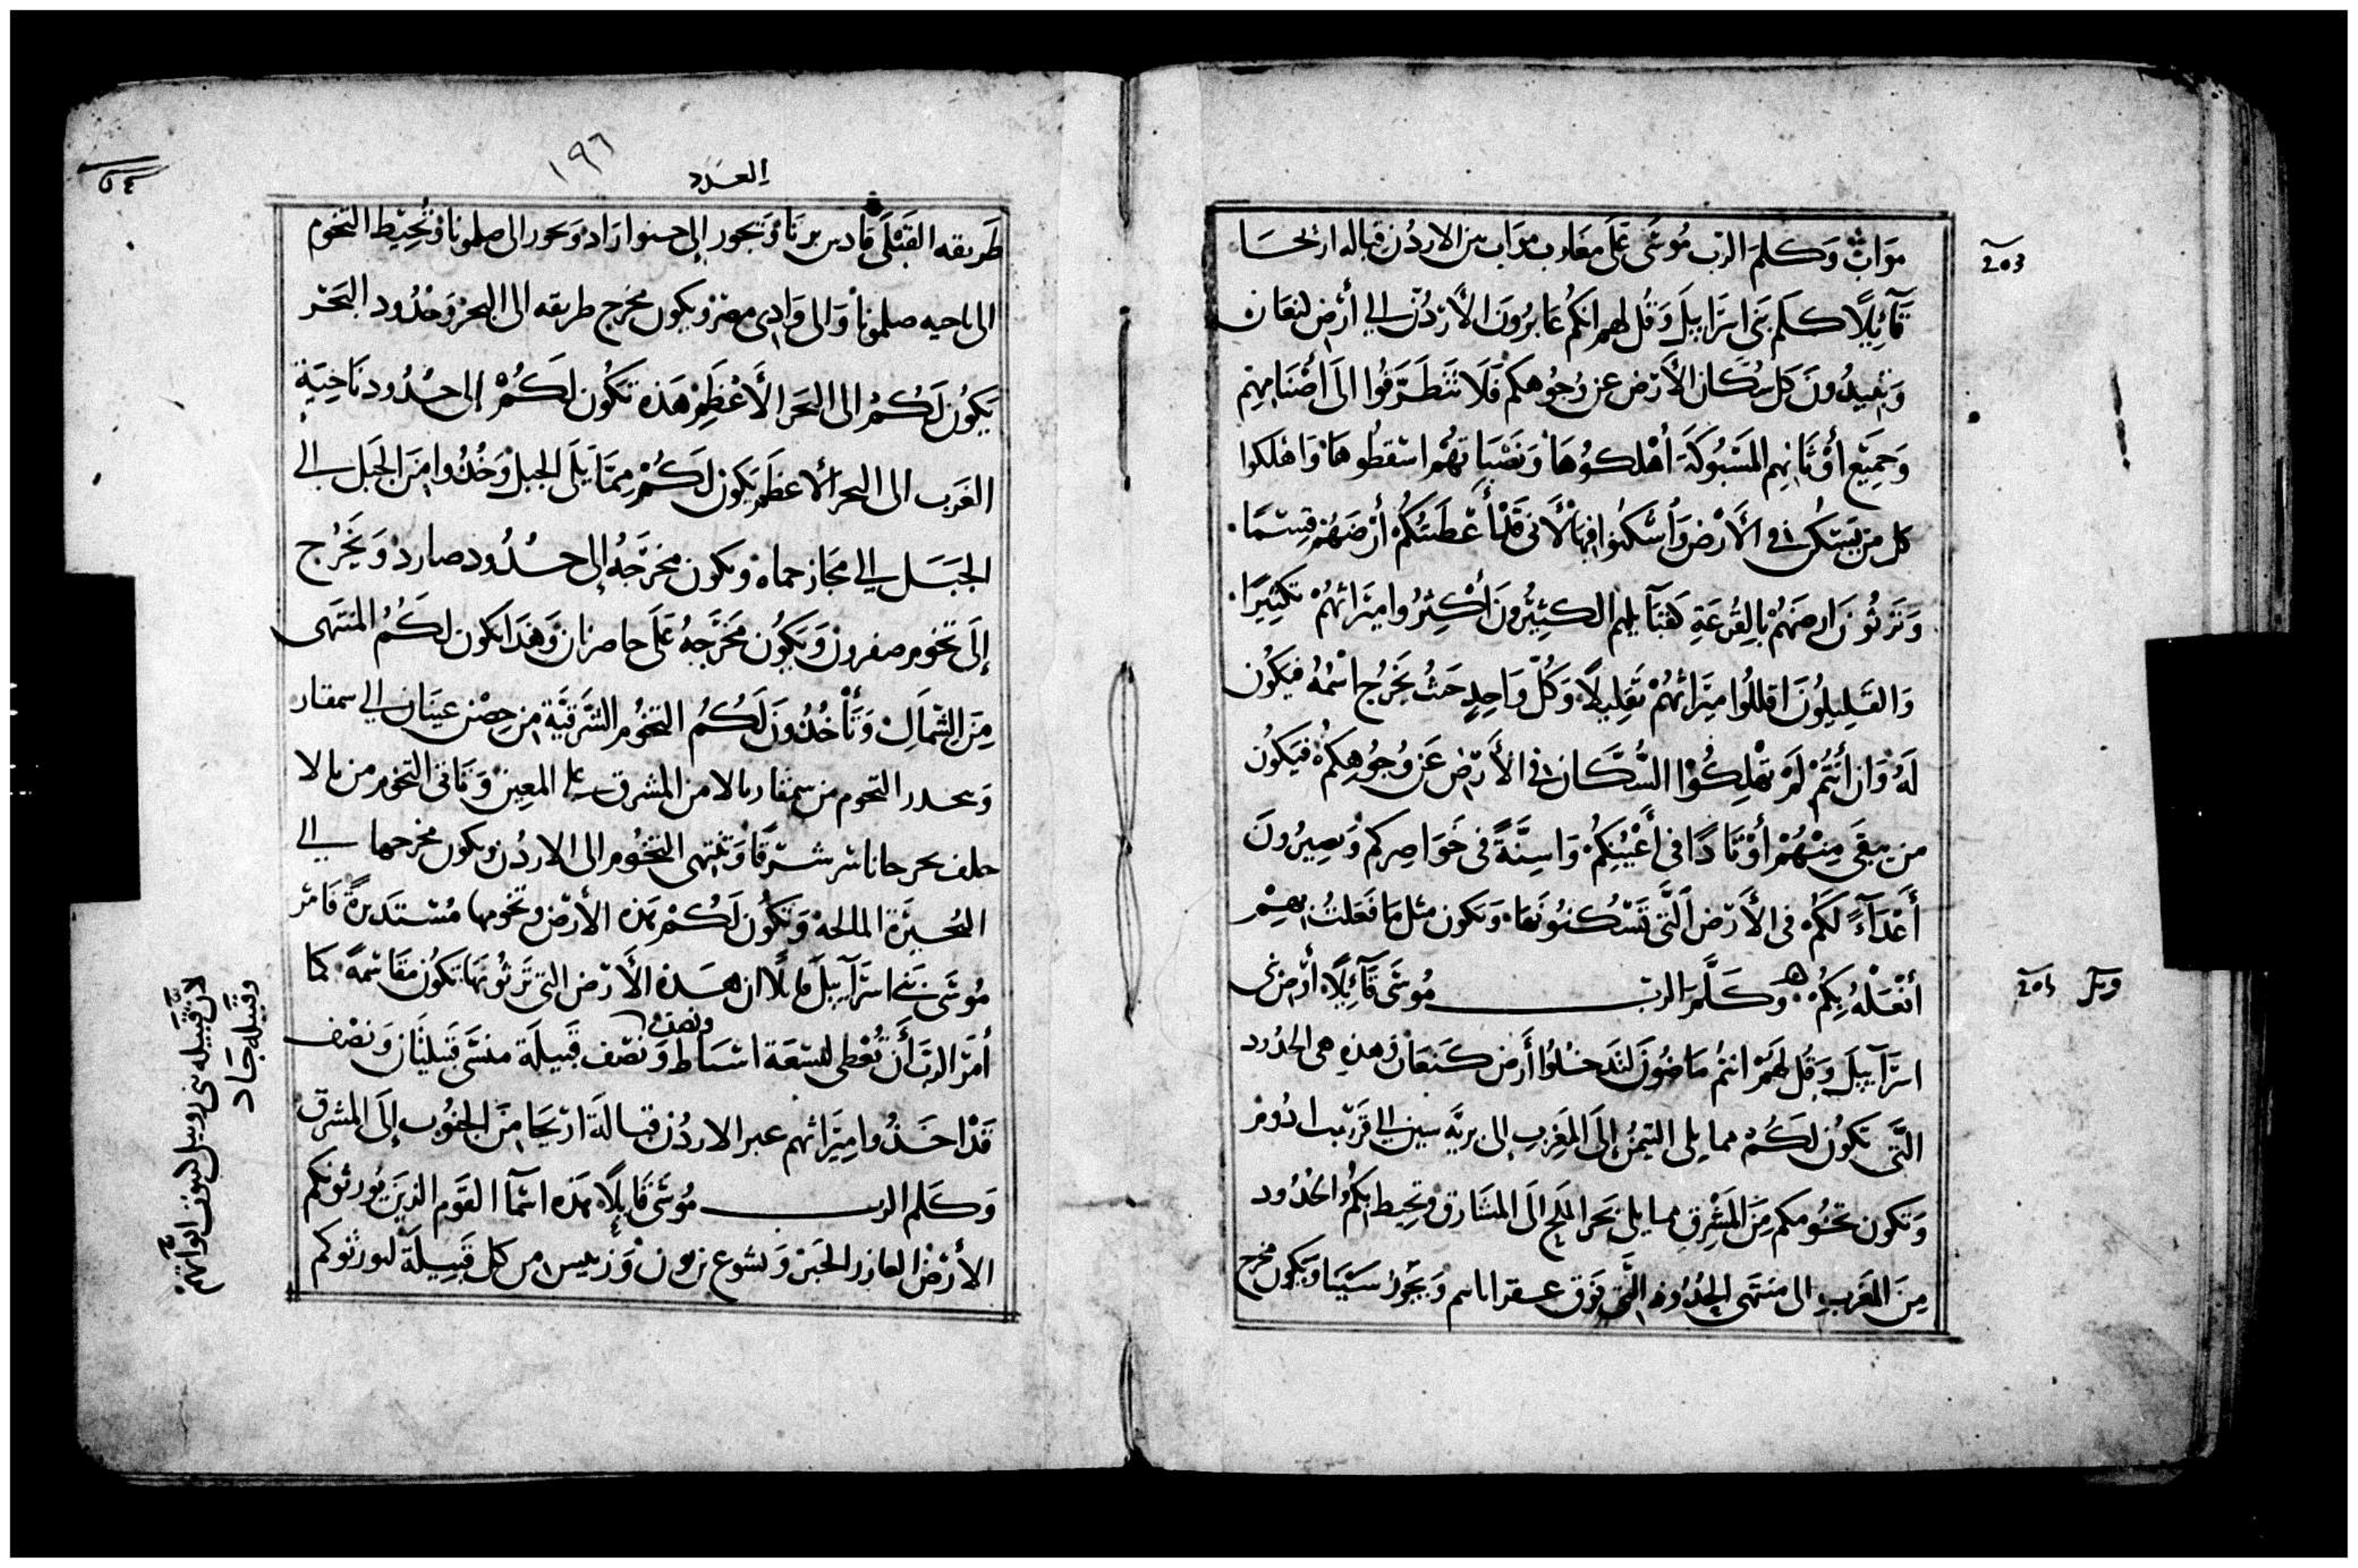 موابْ وَكلم الربّ مُوسَى عَلَى مغارب مواب من الاردُن قباله اريحَا
قآئِلًا كَلم بَنى اسرَايلَ وَقُل لهم انكم عَابرُونَ الأردُن الي أرض كنعَان
وَتبيدُونَ كل سُكَّان الأرض عن وُجوُهكم فَلَا تتَطَرَقوُا الَى أصْنَامِهم
وَجميْع أوْثَانِهم المسْبُوكَة أهْلكوُهَا وَنَصْبَاتهُم اسْقطُوهَا وَاهلكوا
كل من يَسكُن في الأرْض وَأسْكنُوا فيهَا لأنى قَدْ أعْطَيتُكم أرْضَهُمْ قِسمًا
وَتَرثُونَ ارضَهُمْ بالِقُرعَةِ كقبَآيلهم الكثِيرُونَ أكثِرُوا ميْرَاثهُمْ تكثِيرًا
وَالقَلِيلُونَ اقللُوا ميْرَاثهُمْ تقلِيلًا وَكُلّ وَاحِدٍ حَيثُ يَخرُج اسْمُهُ فيَكوُن
لَهُ وَان أنتُمْ لَمْ تهْلِكُوْا السُّكَّان في الأرض عَن وُجُوهِكُم فيَكوُن
من يبقَى مِنْهُمْ أوْتَادًا فى أعْيُنِكُم وَاسِنَّةً فى خَوَاصِركم وَيصِيرُونَ
أعْدَآءً لَكُم فى الأرض الَّتى تَسْكُنوُنَهَا وَيكون مثل مَا فعَلتُ بهِمْ
أفْعَلْهُ بِكمُ وَكَلَّمَ الربّ مُوسَى قَآئِلًا أوْض بَنى
اسرَآييلَ وَقُل لَهُمْ انتُم مَاضُونَ لتَدخُلُوا أرض كَنعَان وَهذِه هى الحدُود
الَّتى تكوُن لَكمْ مما يلى التيمن إلَى المَغرب إلى بريَّه سين الي قرب ادُوم
وَتكون تخُومكم مِنَ المَشْرِق مما يلى بَحَر الملح الَى المشَارق وَتحيط بكم الحُدُود
مِنَ المَغَرب الى منتَهى الحُدُود التَّى فَوق وَيَجُوز سَيْنَا وَيكَون مخرج
203
205
العَدَد
١٩٦
طَريقه القَبْلَى قادس برنَا وَتجور إلى وَتجور الى صلمونا وَتُحِيْط التخوم
الى ناحيه صلمونا وَالى وَادِى مصْر وَيكون مخرج طريقه الى البحر وَحُدُود البَحْر
يَكُون لَكُمْ الى البَحَر الأعْظَم هَذه تكُون لَكُمْ إلى حدُود نَاحيَة
الغَرب الى البحر الأعظَم يَكون لَكُمْ مِمَّا يَلى الجبل وَخُذُوا مِنَ الجَبل الي
الجبَل الي مجَاز حماه وَيكون مخرَجهُ إلى حدُود صارد وَيَخرُج
إلَى تخوم صفرون وَيكَون مخَرَجهُ عَلَى حاصرنان وَهَذَا يكون لَكُمُ المُنتَهى
مِنَ الشمَال وَتأخُذُونَ لَكُمُ التخُوم الشرقيَّة من حِصْن عينَان الي سمفار
وَينحدر التخوم من سمفار من المشرق على المعين وَيَاتى التخوم من
خلف بحر شرقًا وَينتهى التخُوم الى الاردُن وَيكون مخرجها الي
البحيَرة المالحة وَتكُون لَكُمْ هَذه الأرض وَتخومها مُسْتَديرةً فَامَر
مُوسَى بَني اسرَآيلَ قايلًا ان هَذه الأرْض التى ترثُونَهَا تكون مقاسمَة كما
أمَر الرب أن تُعْطى لتسْعَة اسْبَاط وَنصْف قَبيلَة منسَّى قَبيلتَان وَنصْف
قَدْ اخَذُوا مِيرَاثهم عبر الاردُن قبالَة ارْيحَا مِنَ الجنُوب إلَى المشرق
وَكَلم الرب مُوسَى قَايلًا هَذه اسْمآ القَوم الذينَ يُورثونكم
الأرْض العازر الحَبر وَيشوع بن نون وَرَييس من كل قَبيلَة ليورثوكم
ونصف
لان قَبيله بَنى روبيل لبيوت ابَآئهم
وقَبيله جَاد